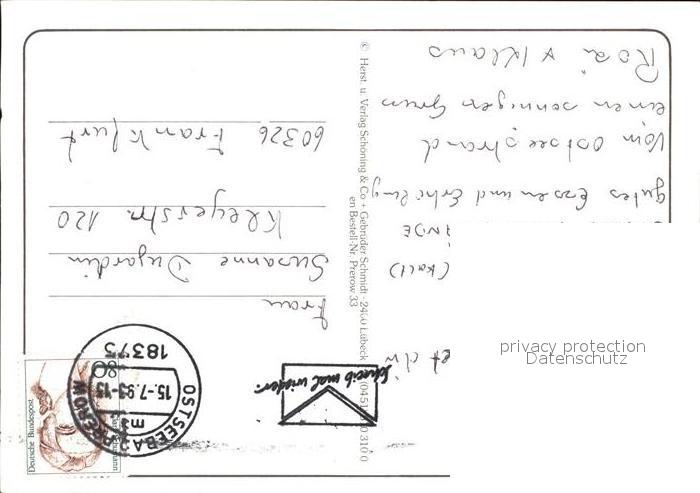 et div
(kalt)
gutes Essen und Erholung
Vom Ostseestrand
einen sonnigen Gruss
Rosi + Klaus
© Herst. u. Verlag Schöning & Co + Gebrüder Schmidt · 2400 Lübeck
en Bestell-Nr. Prerow 33
Schreib mal wieder.
Deutsche Bundespost
80
OSTSEEBAD PREROW
15.-7.93-13
mb
18375
Frau
Susanne Dujardin
Kleyerstr. 120
60326 Frankfurt
privacy protection
Datenschutz